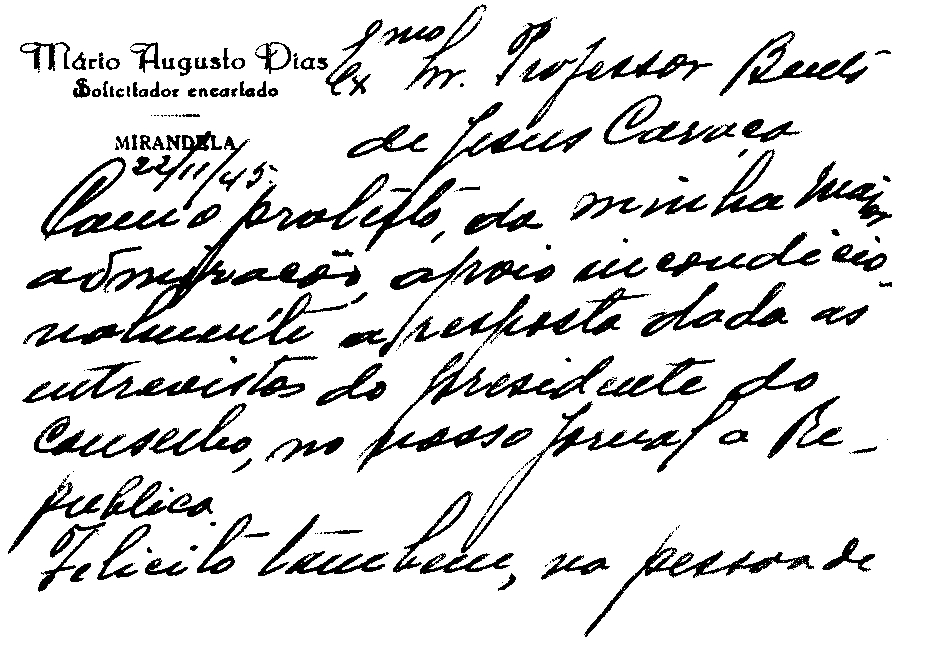 Mário Augusto Dias
Solicitador encartado
MIRANDELA
22/11/45.
Exmo Snr. Professor Bento
de Jesus Caraça
Como protesto, da minha maior
admiração, apoio incondicio-
nalmente a resposta dada as
entrevistas do presidente do
conselho, no nosso jornal a Re-
publica.
Felicito tambem, na pessoa de